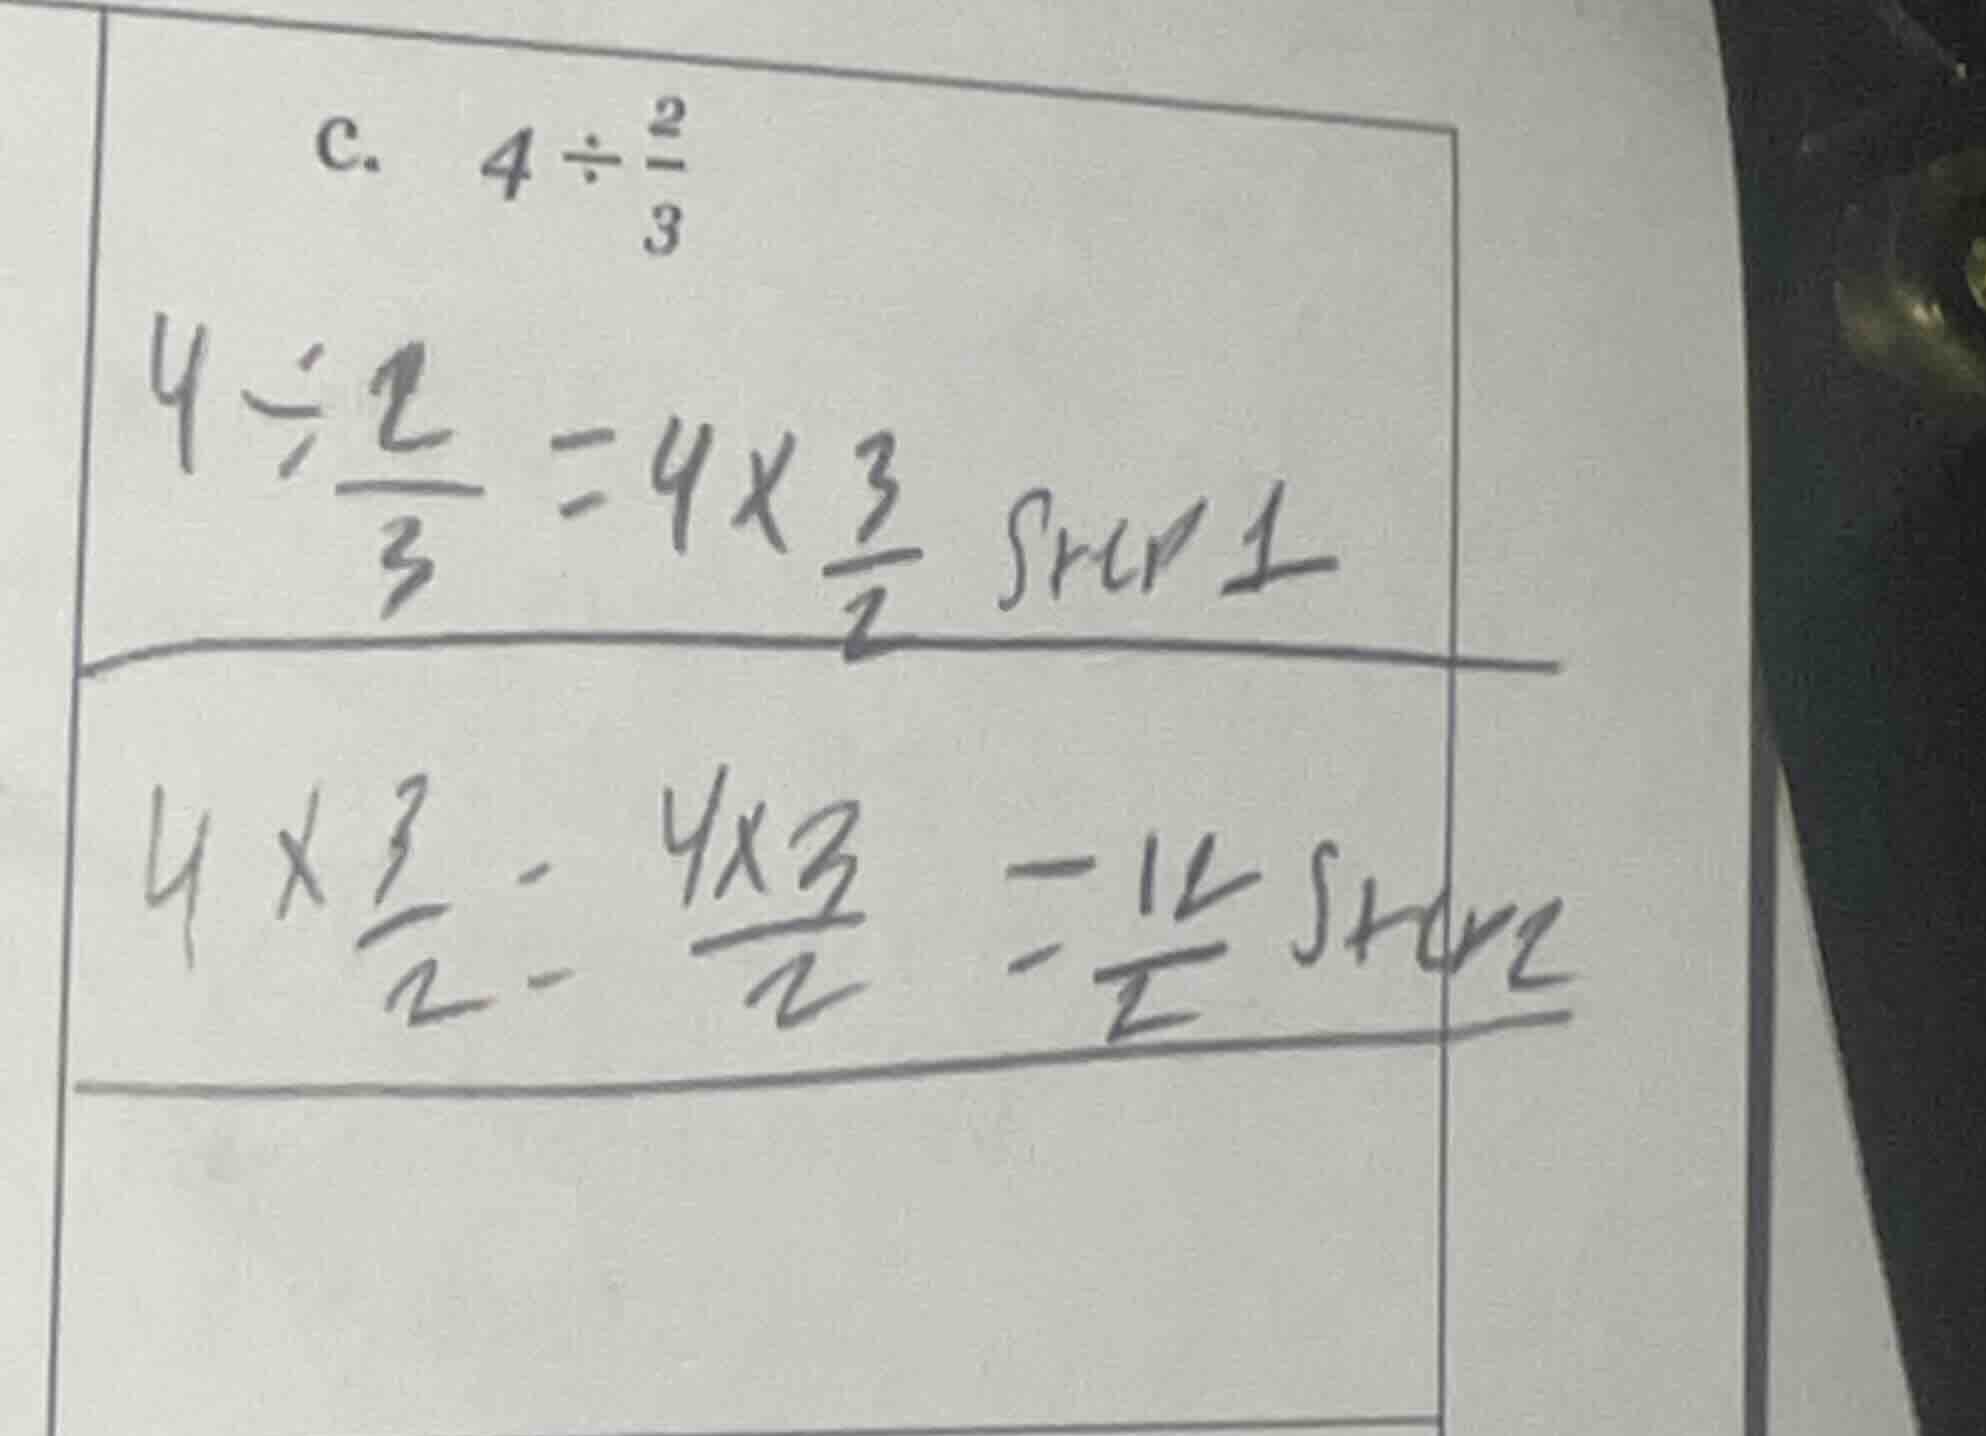 c. 4 ÷ 2/3
4 ÷ 2/3 = 4 x 3/2 Step 1
4 x 3/2 = 4x3/2 = 12/2 Step 2